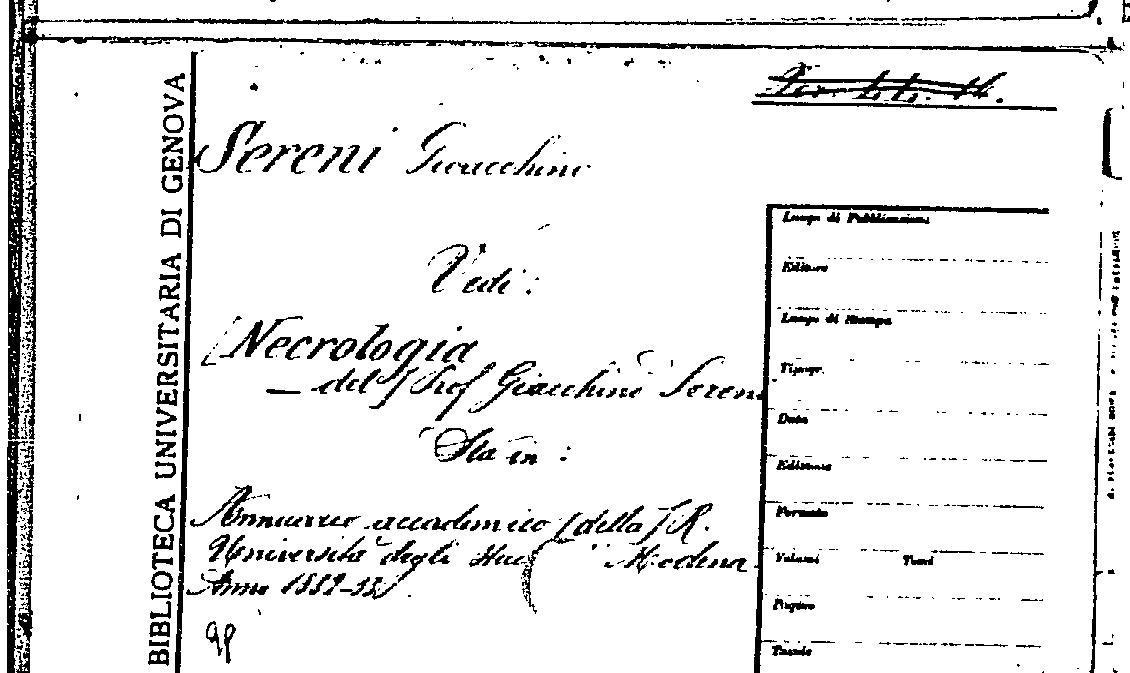 BIBLIOTECA UNIVERSITARIA DI GENOVA
Sereni Gioacchino
Vedi:
[Necrologia
— del] Prof Giacchino Sereni
Sta in:
Annuario accademico [della] R.
Università degli Modena
Anno
Luogo di Pubblicazione
Editore
Luogo di Stampa
Tipogr.
Data
Edizione
Formato
Volumi Tomi
Pagine
Tavole